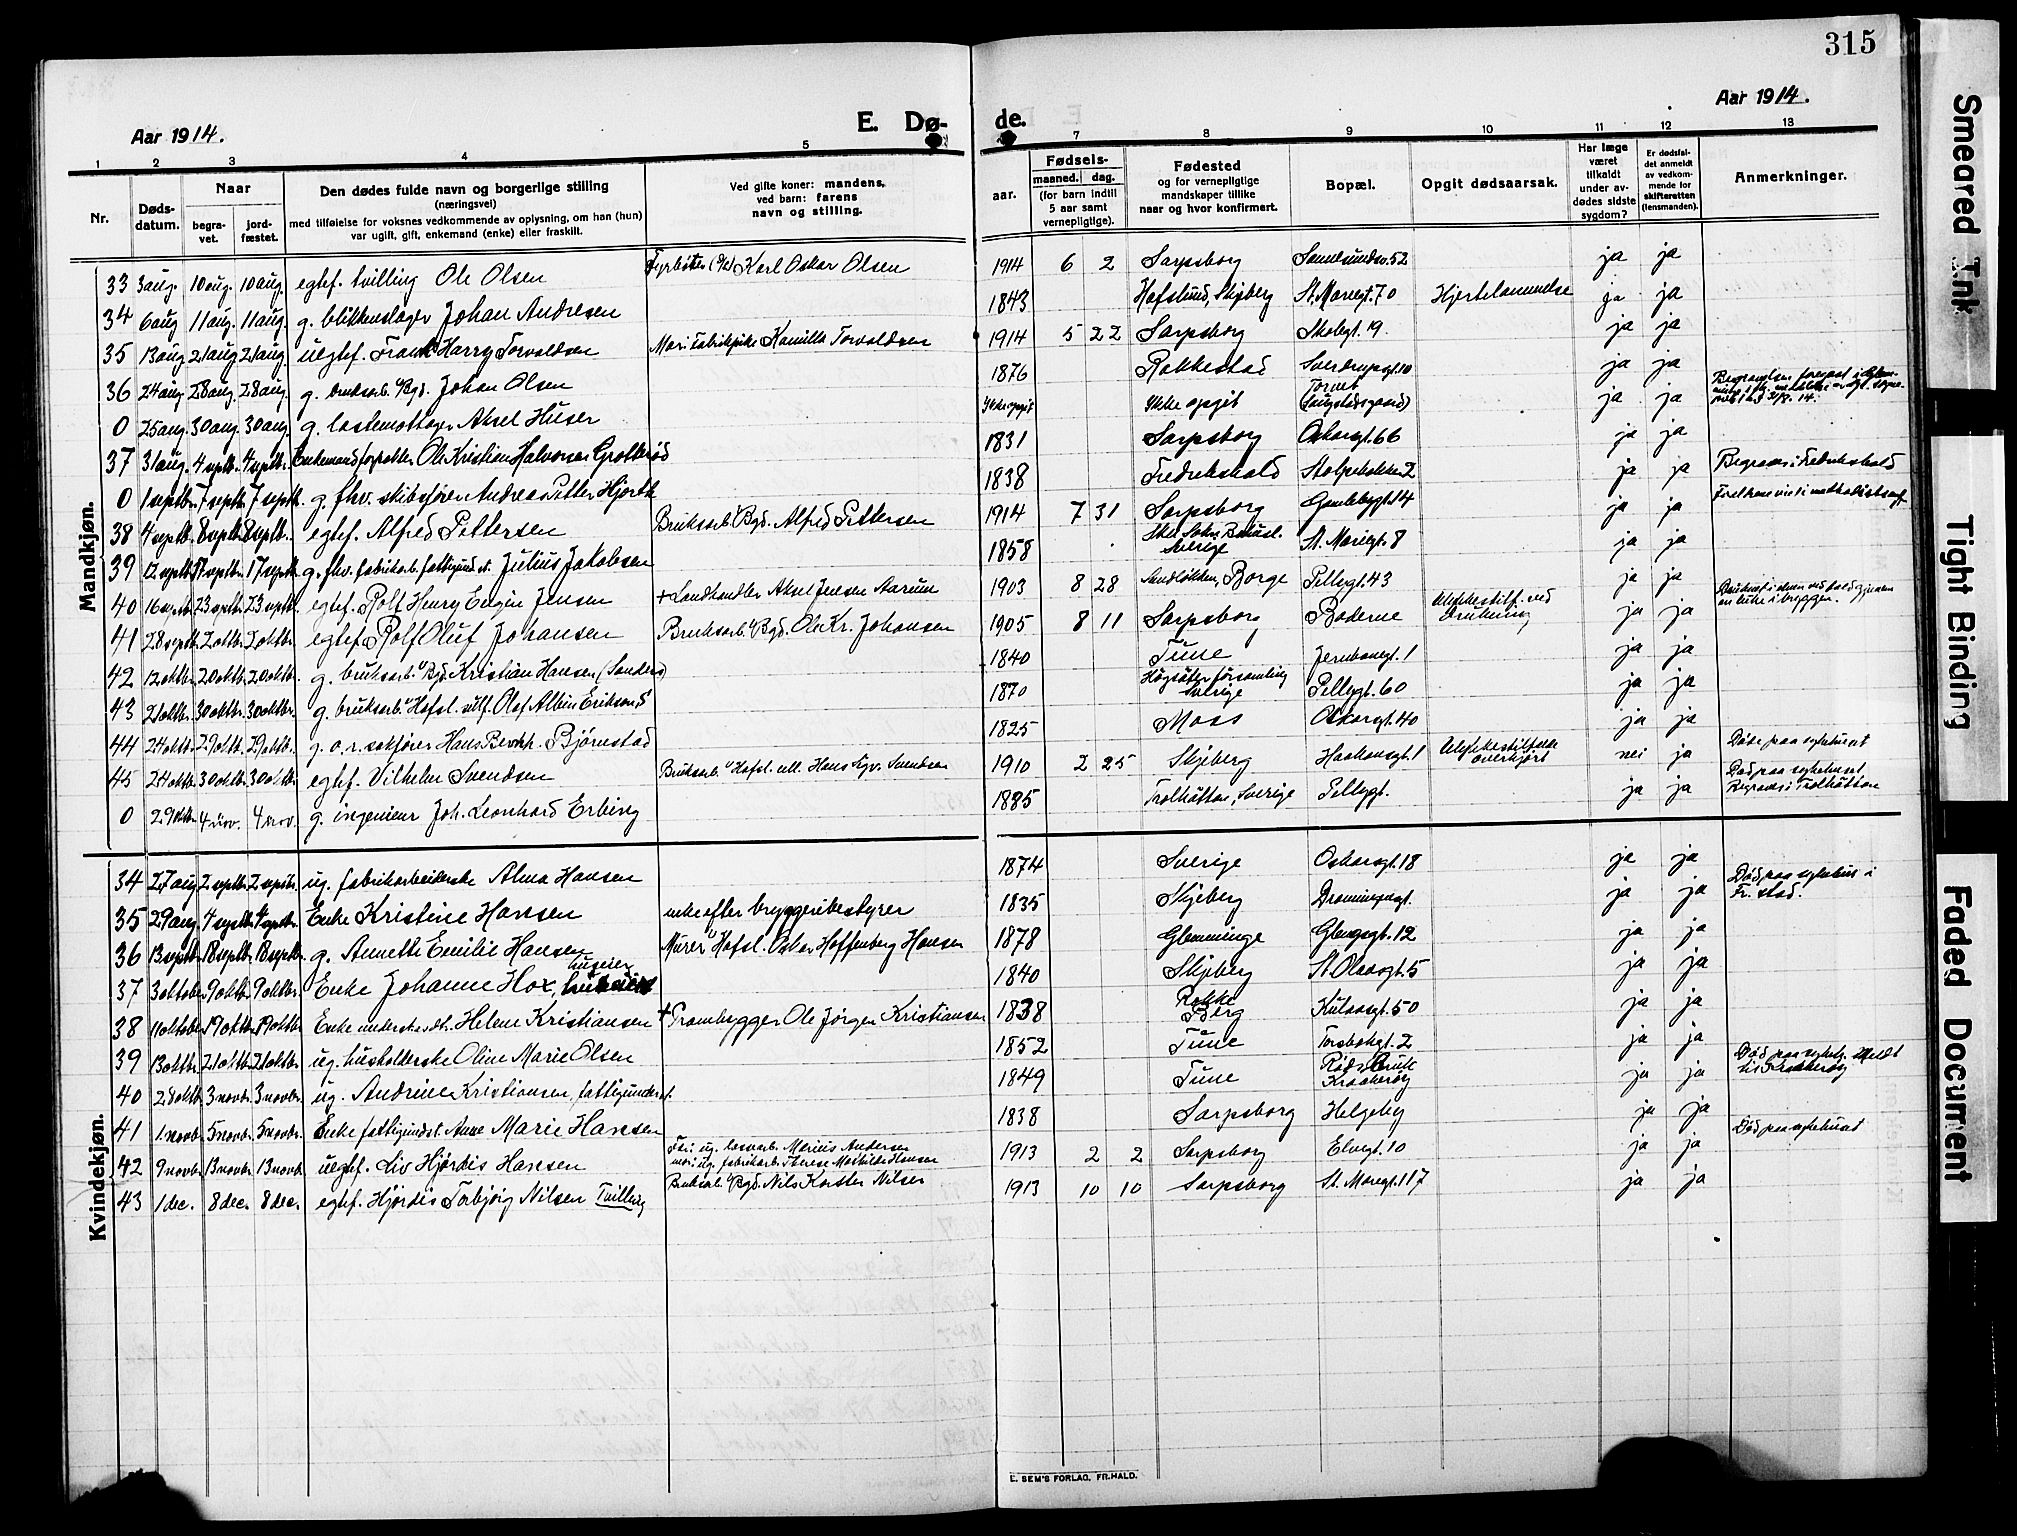 315
Aar 1914.
E. Dø-
de.
Aar 1914.
1 2 3 4 5 7 8 9 10 11 12 13
Nr.
Døds-
datum.
Naar
begra-
vet.
jord-
fæstet.
Den dødes fulde navn og borgerlige stilling
(næringsvei)
med tilføielse for voksnes vedkommende av oplysning, om han (hun)
var ugift, gift, enkemand (enke) eller fraskilt.
Ved gifte koner: mandens,
ved barn: farens
navn og stilling.
Fødsels-
aar.
maaned. dag.
(for barn indtil
5 aar samt
vernepligtige).
Fødested
og for vernepligtige
mandskaper tillike
naar og hvor konfirmert.
Bopæl.
Opgit dødsaarsak.
Har læge
været
tilkaldt
under av-
dødes sidste
sygdom?
Er dødsfal-
det anmeldt
av vedkom-
mende for
skifteretten
(lensmanden).
Anmerkninger.
Mandkjøn.
33 3 aug. 10 aug. 10 aug. egtef. tvilling Ole Olsen Fyrbøter Karl Oskar Olsen 1914 6 2 Sarpsborg Sannesundsv. 52 ja ja
34 6 aug 11 aug. 11 aug. g. blikkenslager Johan Andresen 1843 Hafslund, Skjeberg St. Mariegt. 70 Hjertelammelse ja ja
35 13 aug 21 aug 21 aug. uegtef. Frank Harry Torvaldsen Mor: Fabrikpike Kamilla Torvaldsen 1914 5 22 Sarpsborg Skolegt. 19. ja ja
36 24 aug 28 aug. 28 aug. g. bruksarb. v/Bgd. Johan Olsen 1876 Rakkestad Sverdrupsgt. 10 ja ja
0 25 aug. 30 aug. 30 aug. g. lastemottager Aksel Huser Ikke opgit Ikke opgit Torvet ja ja
37 31 aug. 4 septb. 4 septb. Enkemand forpakter Ole Kristian Halvorsen Grotterød 1831 Sarpsborg Oskarsgt. 66 ja ja
0 1 septb. 7 septb. 7 septb. g. fhv. skibsfører Andreas Petter Hjorth 1838 Fredrikshald Stolpebakken 2 ja ja Begraves i Fredrikshald
38 4 septb. 8 septb. 8 septb. egtef. Alfred Pettersen Bruksarb. v/Bgd. Alfred Pettersen 1914 7 31 Sarpsborg Gamlebygt. 14 ja ja
39 12 septb. 17 septb. 17 septb. g. fhv. fabrikarb. fattigunderst. Julius Jakobsen 1858 Sverige St. Mariegt. 8 ja ja
40 16 septb. 23 septb. 23 septb. egtef. Rolf Henry Eugin Jensen + Landhandler Aksel Jensen Aarum 1903 8 28 Sandløkken, Borge Pellygt. 43 ja ja
41 28 septb. 2 oktbr. 2 oktbr. egtef. Rolf Oluf Johansen Bruksarb. v/Bgd. Ole Kr. Johansen 1905 8 11 Sarpsborg Baderne Ulykkestilf. ved drukning ja ja
42 12 oktbr. 20 oktbr. 20 oktbr. g. bruksarb. v/Bgd. Kristian Hansen (Sanders) 1840 Tune Jernbanegt. 1 ja ja
43 21 oktbr. 30 oktbr. 30 oktbr. g. bruksarb. v/Hafsl. Olaf Albin Erikson 1870 Högsäter församling Sverige Pellygt. 60 ja ja
44 24 oktbr. 29 oktb. 29 oktb. g. o.r. sakfører Hans Bernh. Bjørnestad 1825 Moss Oskarsgt. 40 ja ja
45 24 oktbr. 30 oktbr. 30 oktbr. egtef. Vilhelm Svendsen Bruksarb. v/Hafsl. Hans Sigv. Svendsen 1910 2 25 Skjeberg Haakonsgt. 1 Ulykkestilfælde overkjørt nei ja Døde paa sykehuset
0 29 oktbr. 4 nov. 4 nov. g. ingeniør Joh. Leonhard Erbing 1885 Trolhättan, Sverige Pellygt. ja ja Død paa sykehuset Begraves i Trolhättan
Kvindekjøn.
34 27 aug 2 septb. 2 septb. ug. fabrikarbeiderske Alma Hansen 1874 Sverige Oskarsgt. 18 ja ja
35 29 aug. 4 septb. 4 septbr. Enke Kristine Hansen enke efter bryggeribestyrer 1835 Skjeberg Dronningensgt. ja ja Død paa sykehus i Fr.stad.
36 13 septb. 18 septb. 18 septb. g. Annette Emilie Hansen Murer v/Hafsl. Oskar Hoffenberg Hansen 1878 Glemminge Glengsgt. 12 ja ja
37 3 oktober 9 oktbr. 9 oktbr. Enke Johanne Hox, huseier 1840 Skjeberg St. Olavsgt. 5 ja ja
38 11 oktober 19 oktbr. 19 oktbr. Enke Helene Kristiansen + Prambygger Ole Jørgen Kristiansen 1838 Rokke Berg Kulaasgt. 50 ja ja
39 13 oktbr. 21 oktbr. 21 oktbr. ug. husholderske Oline Marie Olsen 1852 Tune Torsbekgt. 2 ja ja
40 28 oktbr. 3 novbr. 3 novbr. ug. Andrine Kristiansen, fattigunderst. 1849 Tune Kraakerøy ja ja
41 1. novb. 5 novbr. 5 novbr. Enke fattigundst. Anne Marie Hansen 1838 Sarpsborg Helgeby ja ja Død paa sykehuset
42 9 novbr. 13 novbr. 13 novb. uegtef. Liv Hjørdis Hansen Far: ug. Marius Andersen mor: ug. fabrikarb. Therese Mathilde Hansen 1913 2 2 Sarpsborg Elvegt. 10 ja ja
43 1 dec. 8 dec. 8 dec. egtef. Hjørdis Torbjørg Nilsen Tvilling Bruksarb. v/Bgd. Nils Karsten Nilsen 1913 10 10 Sarpsborg St. Mariegt. 117 ja ja
E. SEM'S FORLAG, FR.HALD.
Smeared Ink
Tight Binding
Faded Document